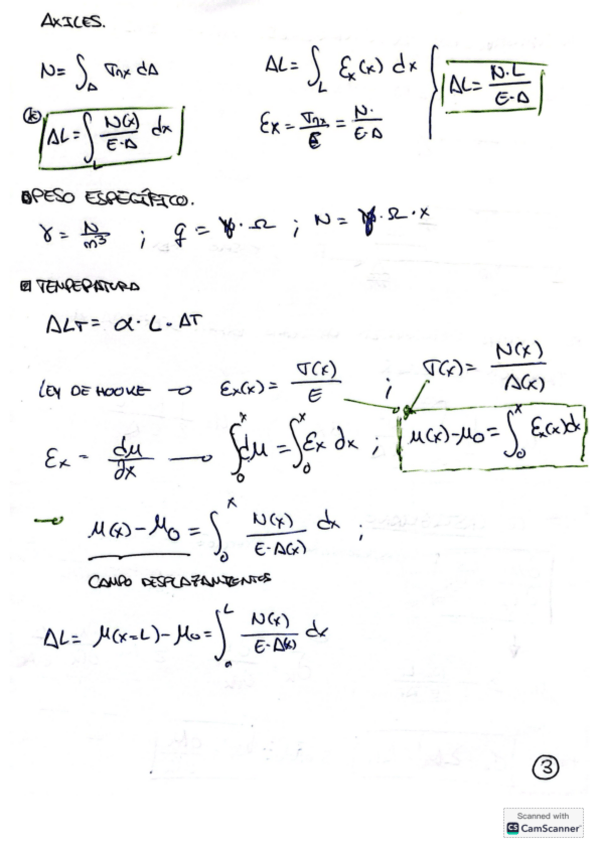 AXILES.
N = ∫_A σnx dA
ΔL = ∫_L εx(x) dx
ΔL = N·L / E·A
(k) ΔL = ∫_L N(x) / E·A dx
εx = σnx / E = N· / E·A
PESO ESPECÍFICO.
γ = N / m³ ; q = γ·Ω ; N = γ·Ω·x
TEMPERATURA
ΔLT = α·L·ΔT
LEY DE HOOKE → εx(x) = σ(x) / E ; σ(x) = N(x) / A(x)
εx = dμ / dx → ∫₀ˣ dμ = ∫₀ˣ εx dx ; μ(x) - μ0 = ∫₀ˣ εx(x) dx
→ μ(x) - μ0 = ∫₀ˣ N(x) / E·A(x) dx ;
CAMPO DESPLAZAMIENTOS
ΔL = μ(x=L) - μ0 = ∫₀ᴸ N(x) / E·A(x) dx
3
Scanned with
CS CamScanner